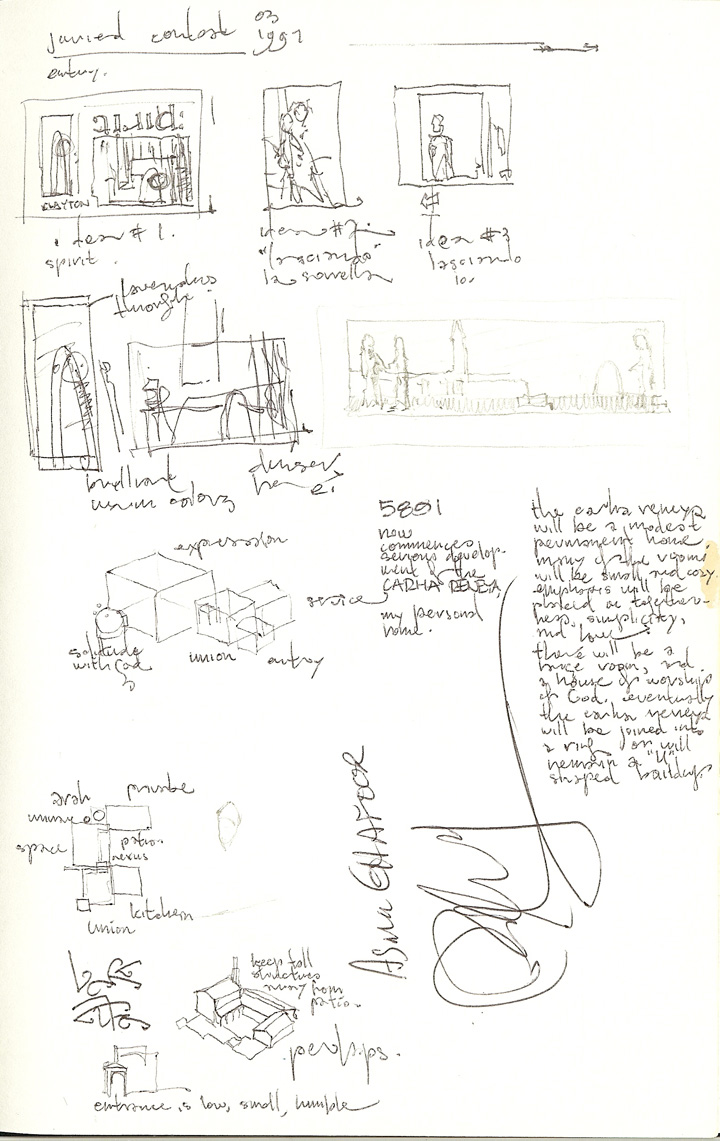 contest 03
1997
entry.
CLAYTON
idea # 1.
spirit.
idea #2.
"lasciando"
la sorella
idea #3
lasciando
lo.
through
brilliant
colors
denser
here
expression
service
solitude
with God
union
entry
5801
now
commences
serious develop-
ment of the
CARHA
my personal
home.
the carha
will be a modest
permanent home.
many of the rooms
will be small and cozy.
emphasis will be
placed on together-
ness, simplicity,
and love
there will be a
large room, and
a house of worship
of God. eventually
the carha
will be joined into
a ring or will
remain a "U"
shaped building.
private
space
patio
nexus
kitchen
union
ASMA GHAFOOR
keep tall
structures
away from
patio.
perhaps.
entrance is low, small, humble